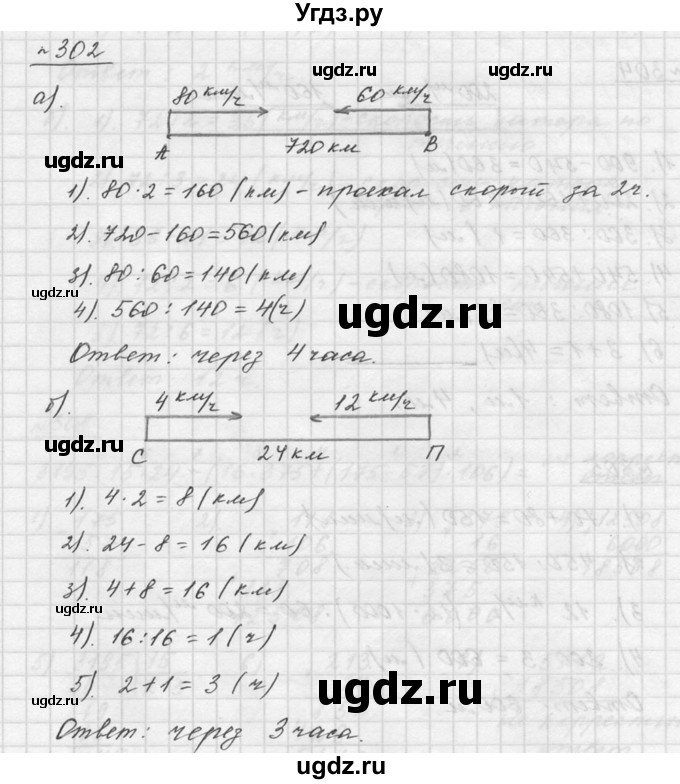 Угдз.ру
n 302
а).
80 км/ч 60 км/ч
А 720 км В
ugdz.ru
1). 80·2=160 (км) - проехал скорый за 2ч.
2). 720-160=560(км)
3). 80:60=140(км)
ugdz.ru
4). 560:140=4(ч)
ugdz.ru
Ответ: через 4 часа.
ugdz.ru
б).
4 км/ч 12 км/ч
ugdz.ru
С 24 км П
1). 4·2=8(км)
2). 24-8=16(км)
3). 4+8=16(км)
ugdz.ru
4). 16:16=1(ч)
5). 2+1=3(ч)
ugdz.ru
ugdz.ru
Ответ: через 3 часа.
Угдз.ру